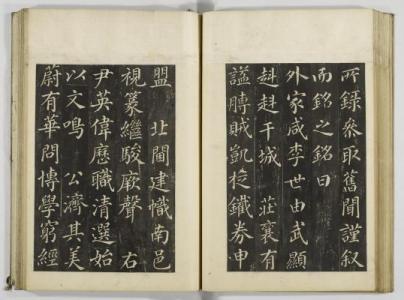 所録叅取舊聞謹叙
而銘之銘曰
外家咸李世由武顯
赳赳干城 莊襄有
謚勝賊凱旋鐵券申
盟 北閫建幟南邑
視篆繼駿厥聲 右
尹英偉應職清選始
以文鳴 公濟其美
蔚有華問博學窮經